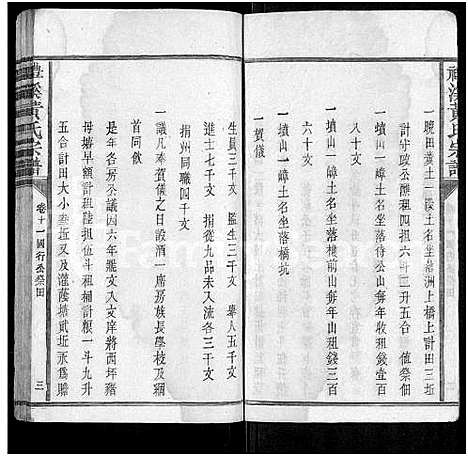 禮溪黃氏宗譜
一晚田黃土一段土名坐落洲上橋上計田三坵
計守政公醮租四擔六斗三升五合值祭佃
一墳山一嶂土名坐落侍公山每年山租錢壹百
八十文
一墳山一嶂土名坐落壩前山每年山租錢三百
六十文
一墳山一嶂土名坐落橋坑
一賀儀
生員三千文 監生三千文 舉人五千文
進士七千文 捐從九品未入流各三千文
捐州同職四千文
一議凡奉賀儀之日設酒一席房族長學校及
首同飲
是年各房公議因六年匪文入亭將西坪豬
母塘旱額計租陸担伍斗租桶計糧一斗九升
五合計田大小叁坵又及灌蔭塘貳坵永爲賠
禮溪黃氏宗譜
卷十一 國行丞祭田
三